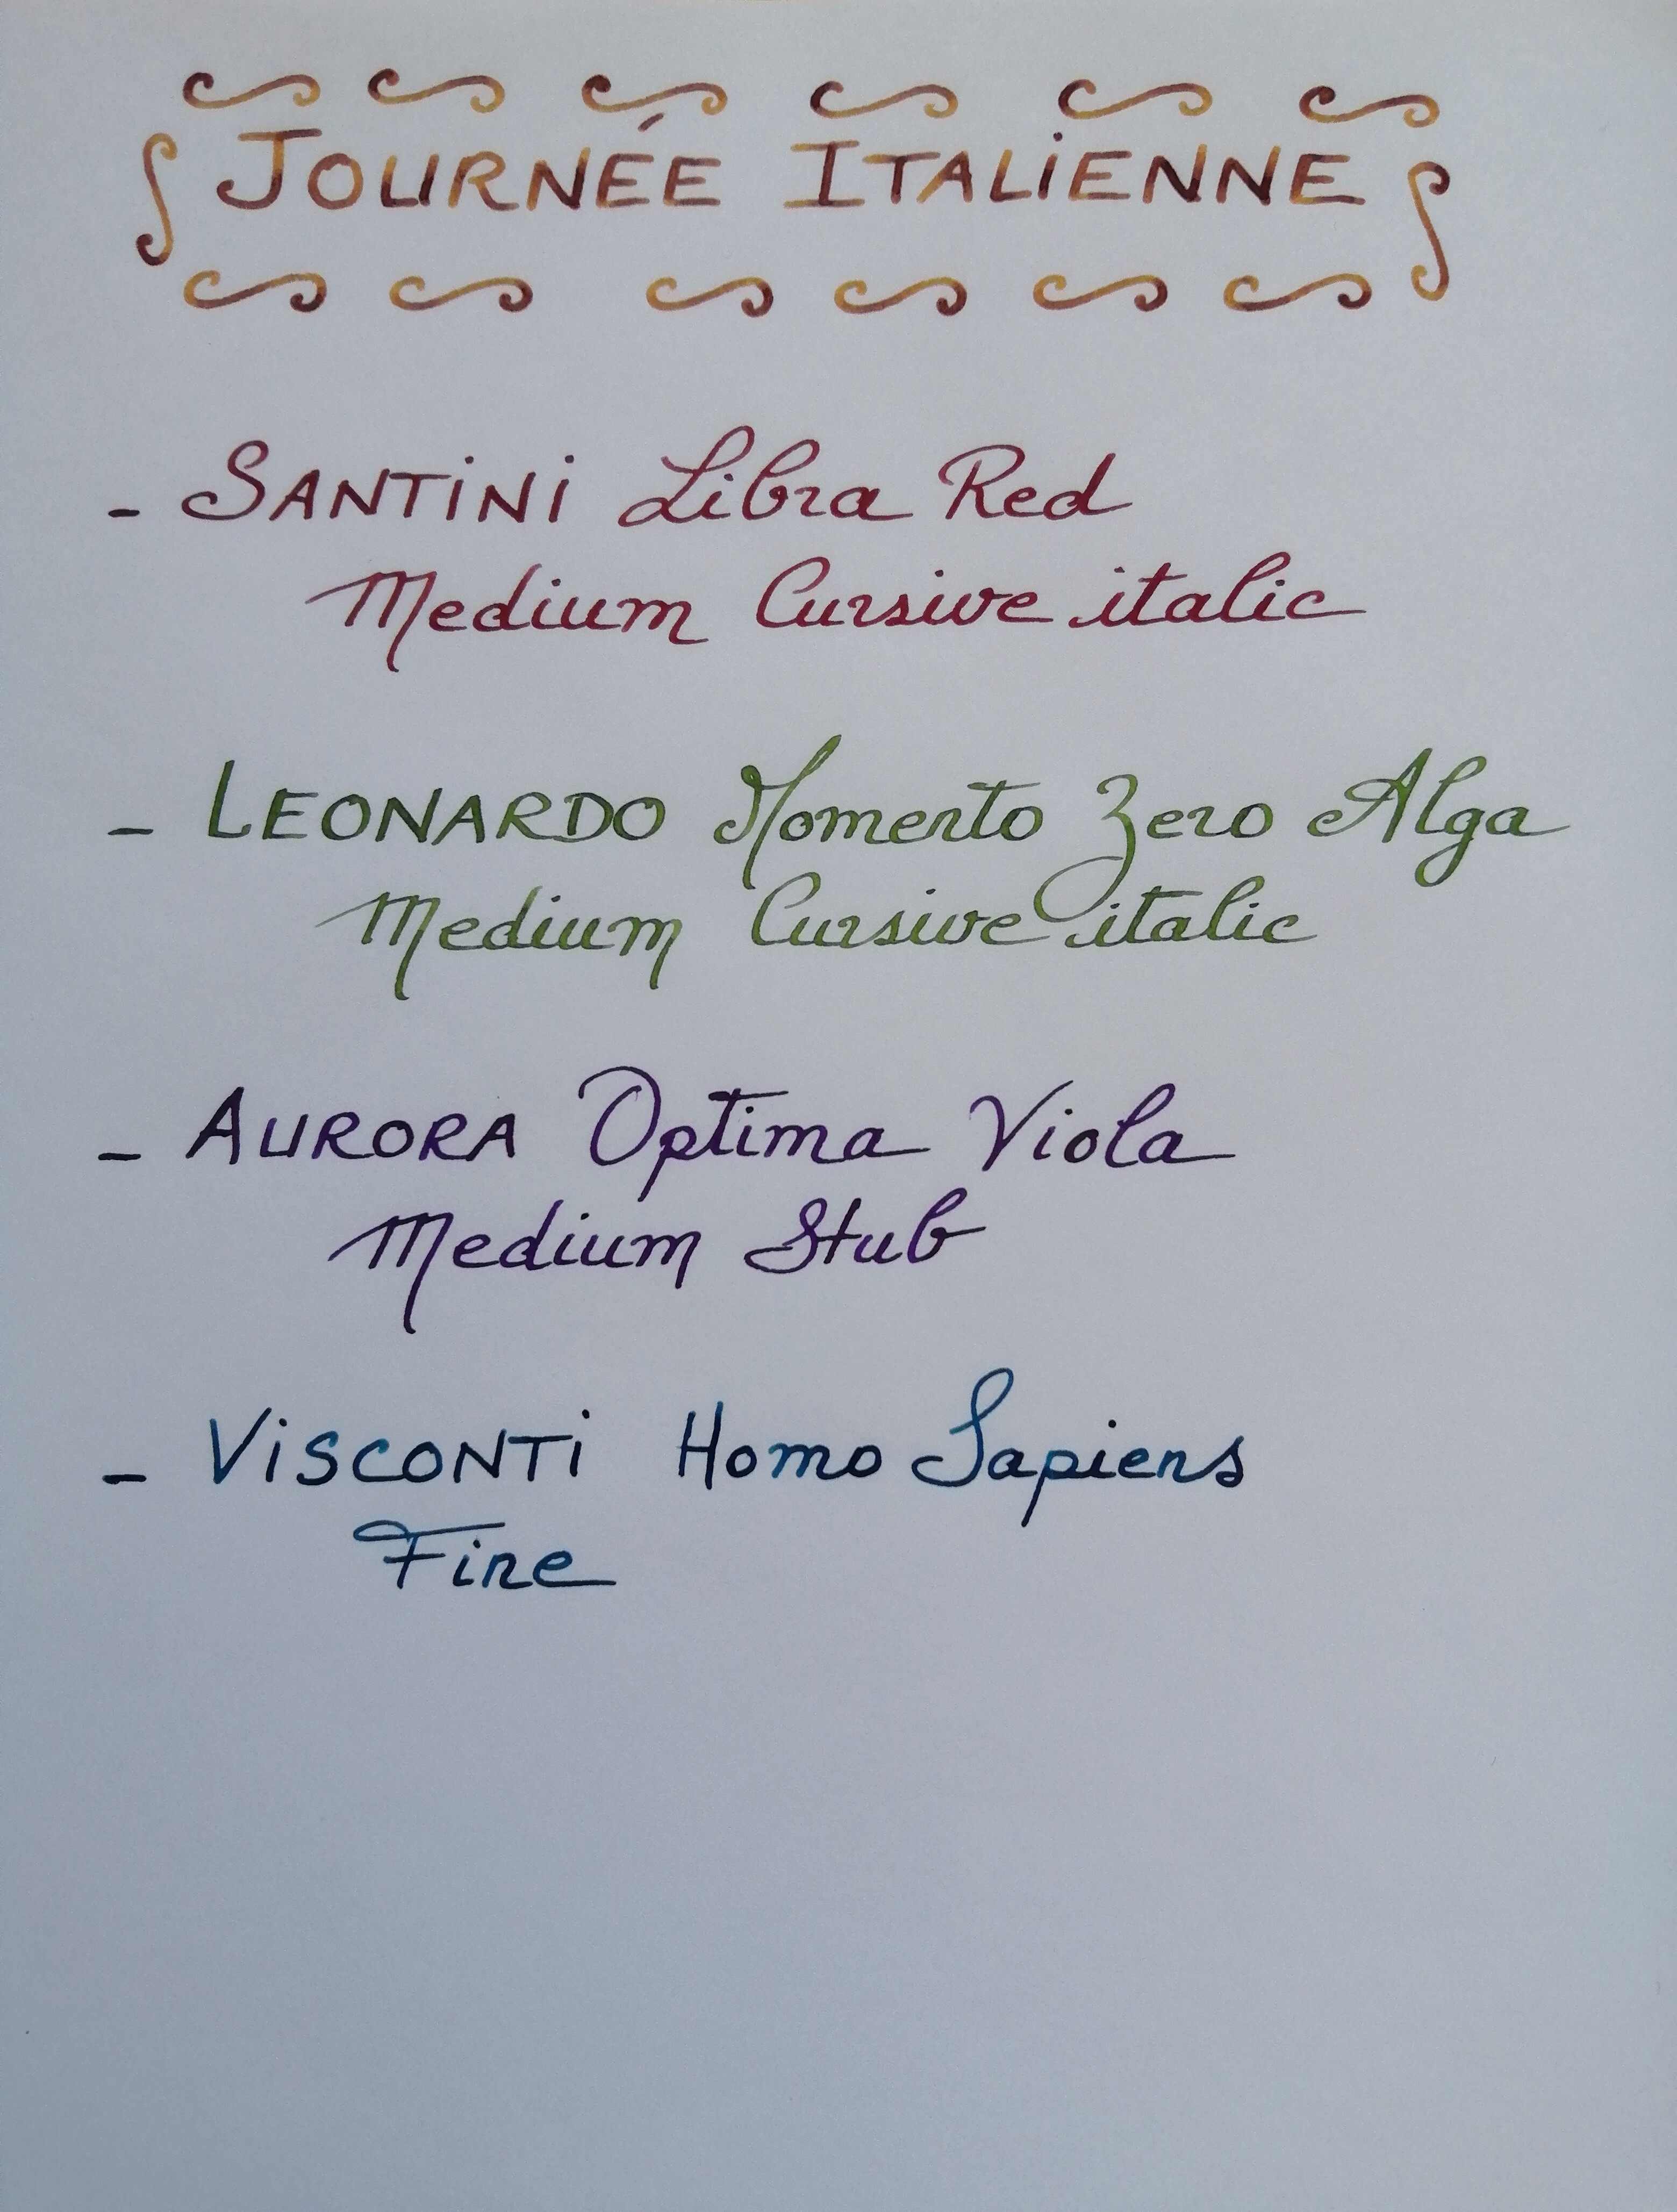 JOURNÉE ITALIENNE
- SANTINI Libra Red
Medium Cursive italic
- LEONARDO Momento Zero Alga
Medium Cursive italic
- AURORA Optima Viola
Medium Stub
- VISCONTI Homo Sapiens
Fine